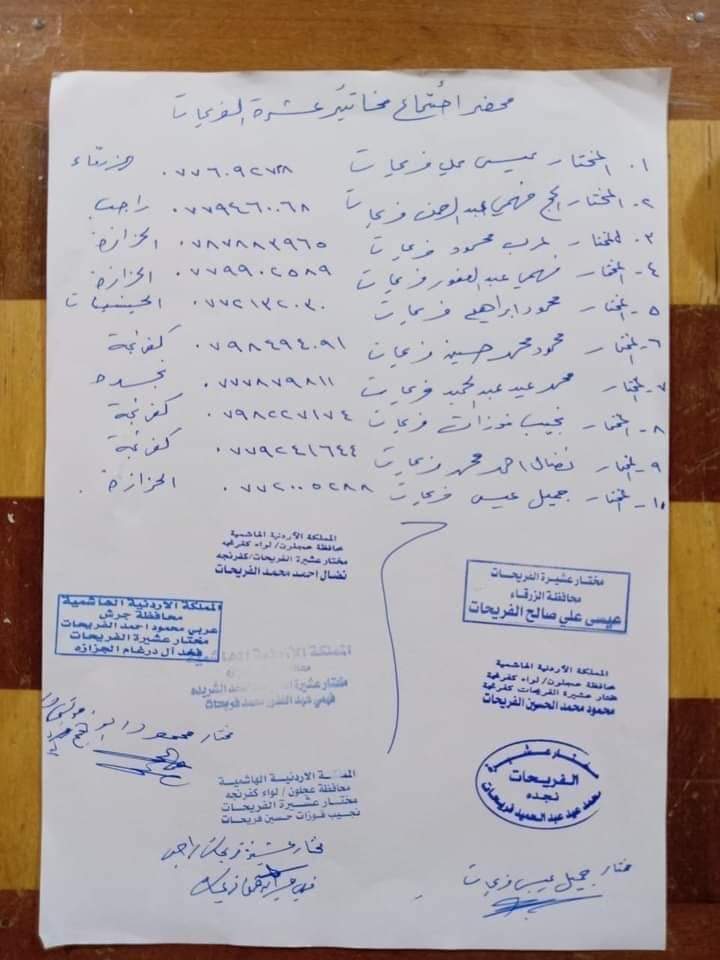 محضر اجتماع مخاتير عشيرة الفريحات
١. المختار عيسى علي فريحات ٠٧٧٦٠٩٢٧٣٨ الزرقاء
٢- المختار الحج فهمي عبدالرحمن فريحات ٠٧٧٩٤٦٠٠٦٨ راجب
٣. المختار عربي محمود فريحات ٠٧٨٧٨٨٣٩٦٥ الجزازة
٤- المختار فهمي عبدالغفور فريحات ٠٧٧٩٩٠٢٥٨٩ الجزازة
٥- المختار محمود ابراهيم فريحات ٠٧٧٢١٣٢٠٣٠ الحسينيات
٦- المختار محمود محمد حسين فريحات ٠٧٩٨٤٩٤٠٩١ كفرنجة
٧- المختار محمد عيد عبدالحميد فريحات ٠٧٧٧٨٧٩٨١١ نجده
٨- المختار نجيب فوزات فريحات ٠٧٩٨٢٢٧١٧٤ كفرنجة
٩- المختار نضال احمد محمد فريحات ٠٧٧٩٢٤١٦٤٤ كفرنجة
١٠- المختار جميل عيسى فريحات ٠٧٧٢٠٠٥٢٨٨ الجزازة
المملكة الأردنية الهاشمية
محافظة عجلون / لواء كفرنجه
مختار عشيرة الفريحات/كفرنجه
نضال احمد محمد الفريحات
مختار عشيرة الفريحات
محافظة الزرقاء
عيسى علي صالح الفريحات
المملكة الاردنية الهاشمية
محافظة جرش
عربي محمود احمد الفريحات
مختار عشيرة الفريحات
فخذ آل درغام الجزازه
المملكة الاردنية الهاشمية
مختار عشيرة
فهمي عبد الغفور محمد فريحات
المملكة الأردنية الهاشمية
محافظة عجلون / لواء كفرنجة
مختار عشيرة الفريحات كفرنجة
محمود محمد الحسين الفريحات
مختار محمود ابراهيم
مختار عشيرة
الفريحات
نجده
محمد عيد عبد الحميد فريحات
المملكة الاردنية الهاشمية
محافظة عجلون / لواء كفرنجه
مختار عشيرة الفريحات
نجيب فوزات حسين فريحات
مختار عشيرة فريحات راجب
مختار جميل عيسى فريحات